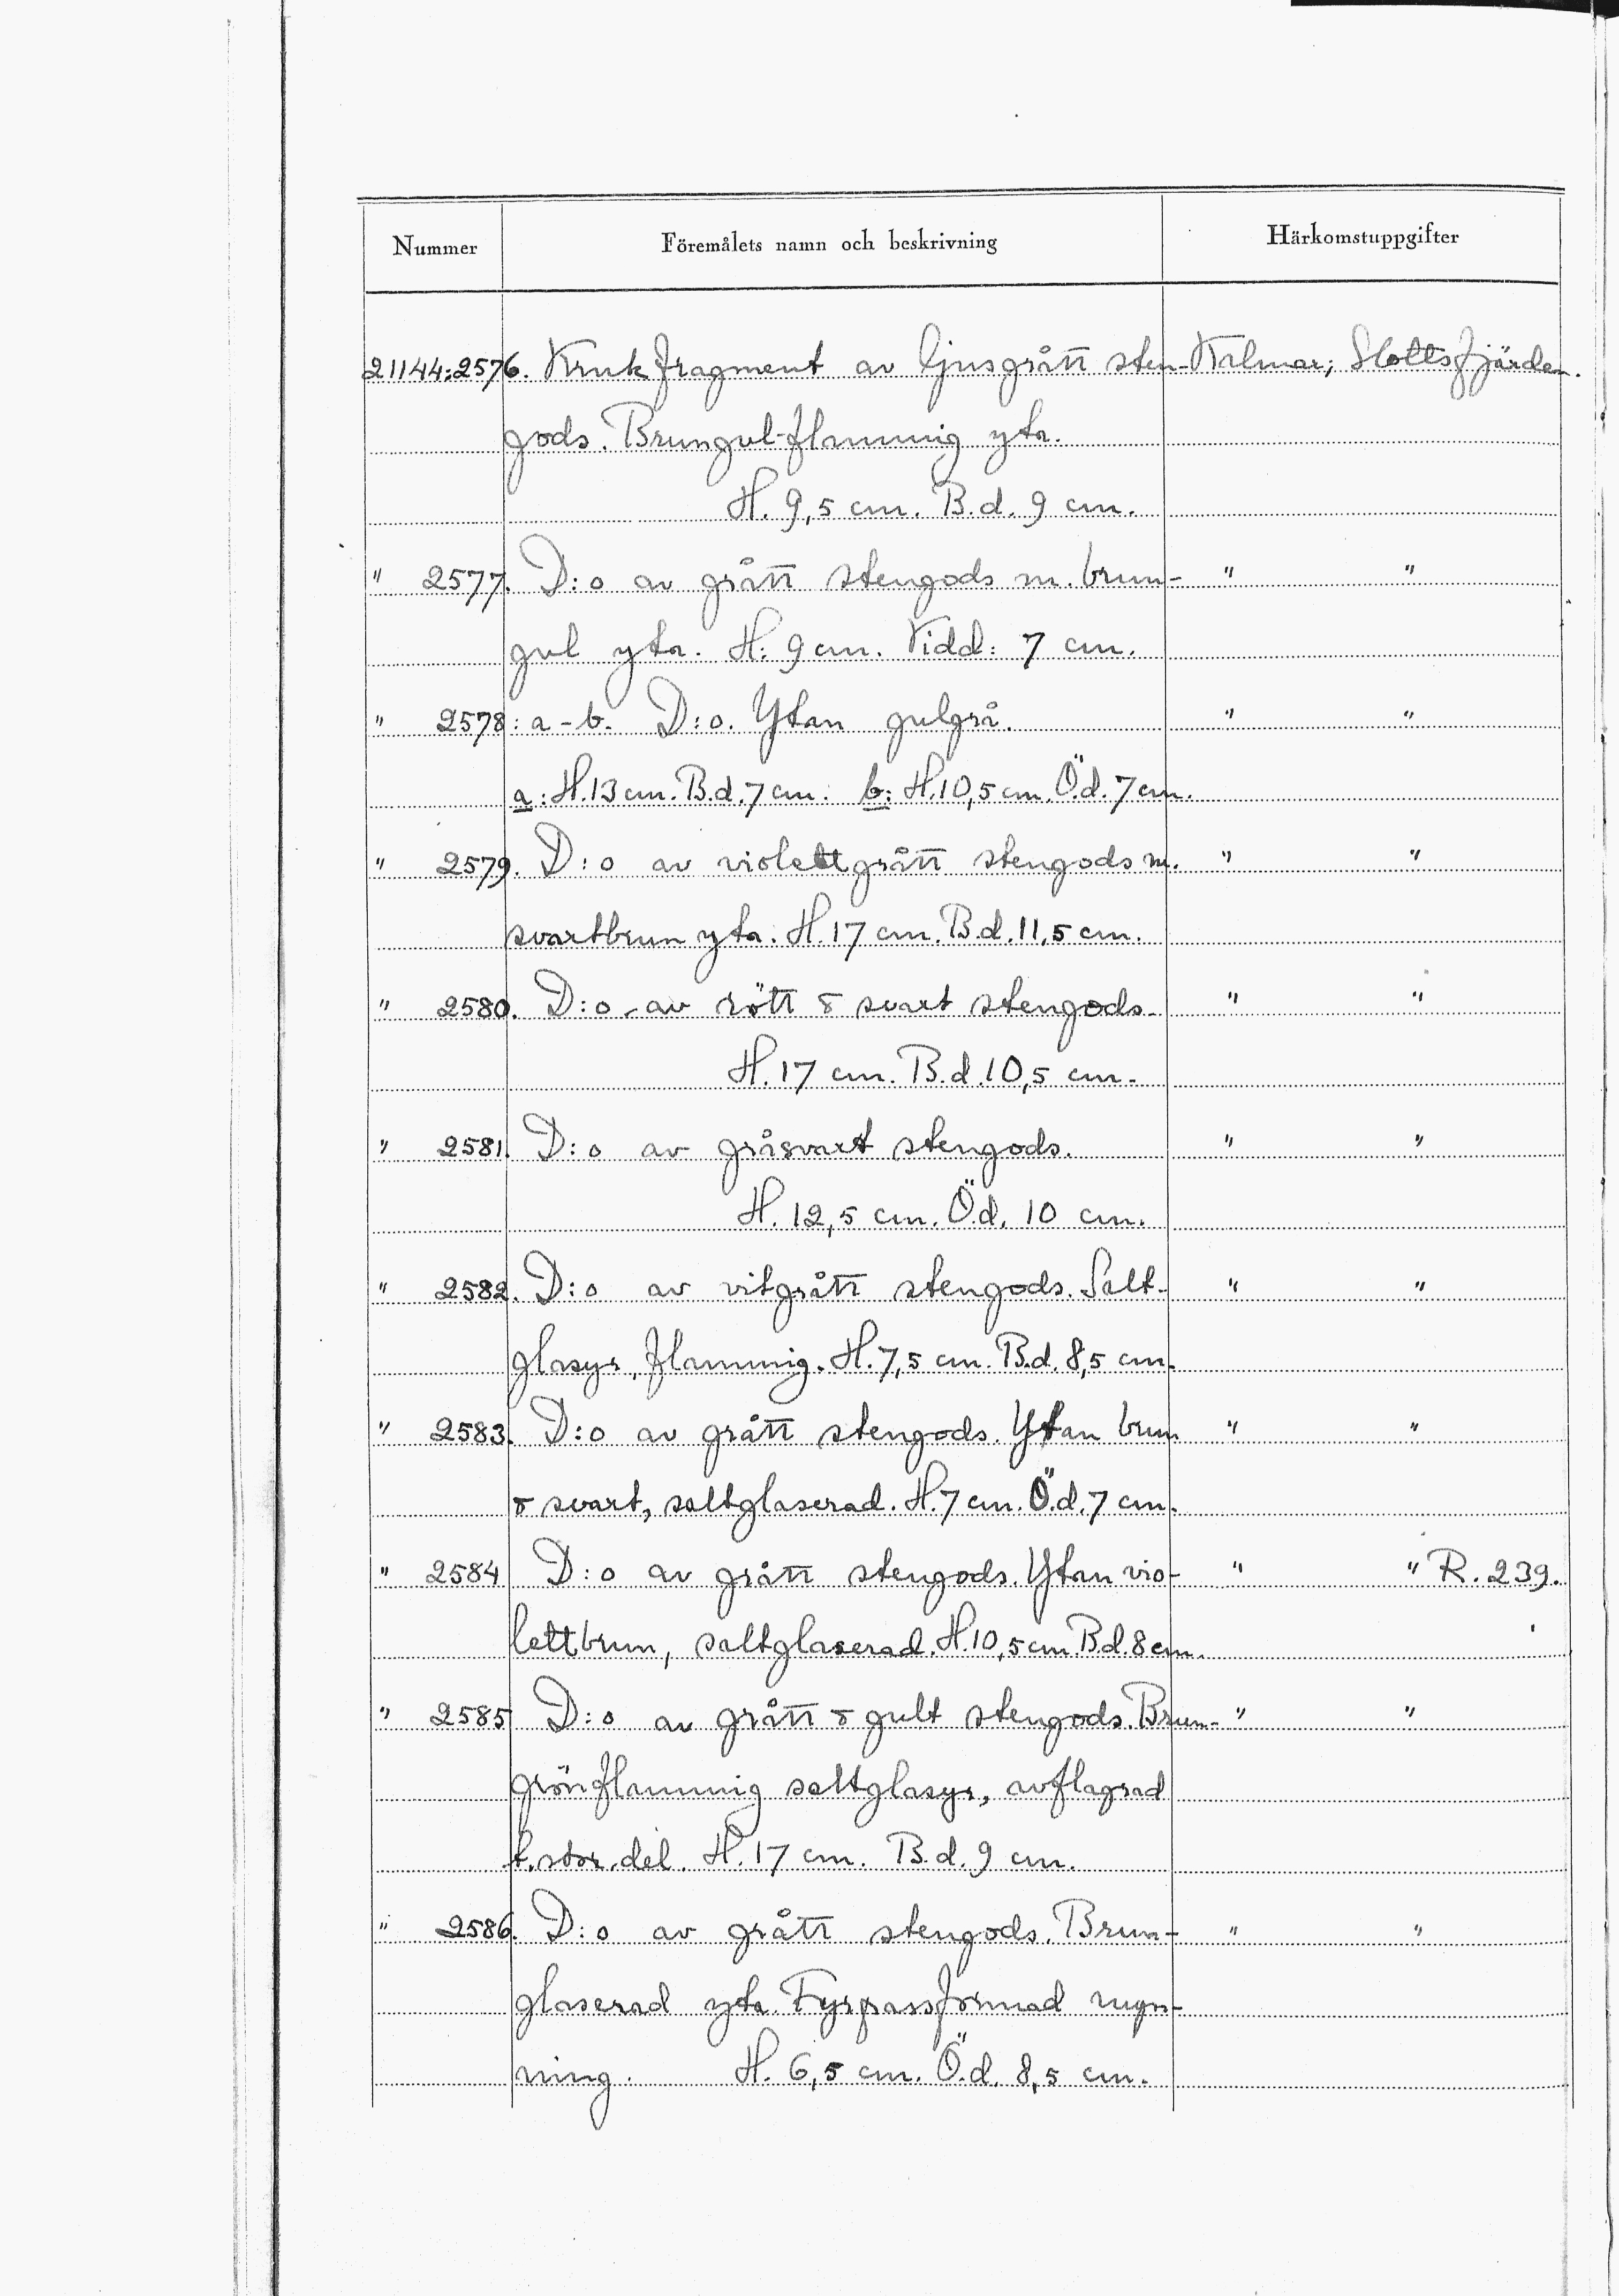 Nummer Föremålets namn och beskrivning Härkomstuppgifter
21144:2576. Krukfragment av ljusgrått sten- Kalmar; Slottsfjärden.
gods. Brungul-flammig yta.
H. 9,5 cm. B.d. 9 cm.
" 2577. D:o av grått stengods m. brun- " "
gul yta. H: 9 cm. Vidd: 7 cm.
" 2578: a-b. D:o. Ytan gulgrå. " "
a: H. 13 cm. B.d. 7 cm. b: H. 10,5 cm. Ö.d. 7 cm.
" 2579. D:o av violettgrått stengods m. " "
svartbrun yta. H. 17 cm. B.d. 11,5 cm.
" 2580. D:o av rött & svart stengods. " "
H. 17 cm. B.d. 10,5 cm.
" 2581. D:o av gråsvart stengods. " "
H. 12,5 cm. Ö.d. 10 cm.
" 2582. D:o av vitgrått stengods. Salt- " "
glasyr, flammig. H. 7,5 cm. B.d. 8,5 cm.
" 2583. D:o av grått stengods. Ytan brun " "
& svart, saltglaserad. H. 7 cm. Ö.d. 7 cm.
" 2584 D:o av grått stengods. Ytan vio- " " R. 239.
lettbrun, saltglaserad. H. 10,5 cm B.d. 8 cm.
" 2585 D:o av grått & gult stengods. Brun- " "
grönflammig saltglasyr, avflagrad
t. stor del. H. 17 cm. B.d. 9 cm.
" 2586. D:o av grått stengods. Brun- " "
glaserad yta. Fyrpassformad myn-
ning. H. 6,5 cm. Ö.d. 8,5 cm.